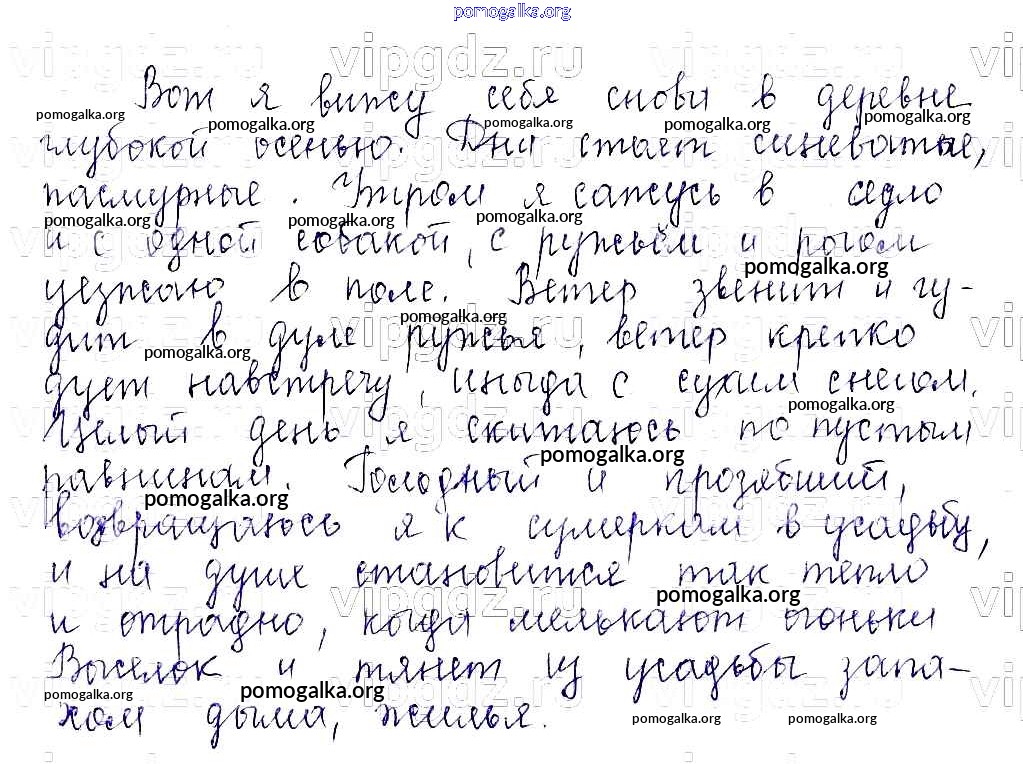 pomogalka.org
Вот я вижу себя снова в деревне
глубокой осенью. Дни стоят синеватые,
пасмурные. Утром я сажусь в седло
и с одной собакой, с ружьём и рогом
уезжаю в поле. Ветер звенит и гу-
дит в дуле ружья, ветер крепко
дует навстречу, иногда с сухим снегом.
Целый день я скитаюсь по пустым
равнинам. Голодный и прозябший,
возвращаюсь я к сумеркам в усадьбу,
и на душе становится так тепло
и отрадно, когда мелькают огоньки
Выселок и тянет из усадьбы запа-
хом дыма, жилья.